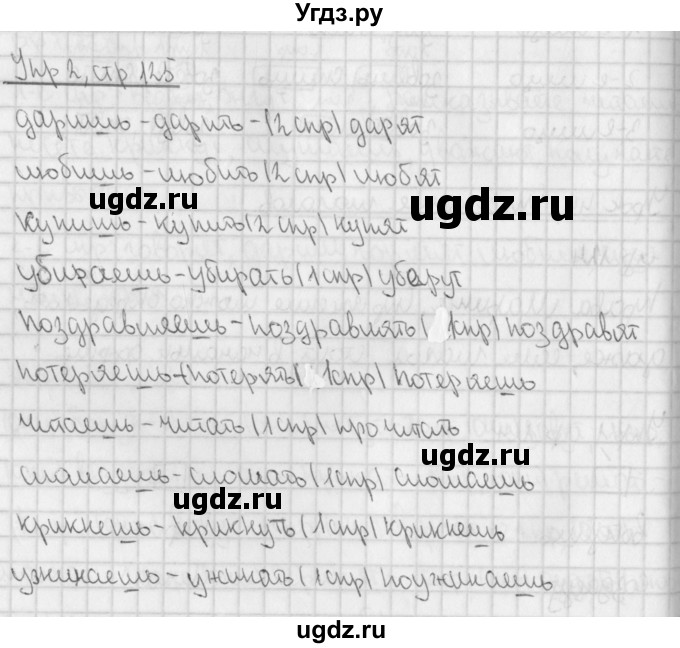 Угдз.ру
Упр 2, стр 125
даришь - дарить - |2 спр| дарят
любишь - любить |2 спр| любят
ugdz.ru
ugdz.ru
купишь - купить |2 спр| купят
убираешь - убирать |1 спр| уберут
поздравляешь - поздравлять | 1спр| поздравят
потеряешь - потерять | 1спр| потеряешь
читаешь - читать |1 спр| прочитать
ugdz.ru
сломаешь - сломать |1спр| сломаешь
ugdz.ru
крикнешь - крикнуть |1 спр| крикнешь
ужинаешь - ужинать |1 спр| поужинаешь
ugdz.ru